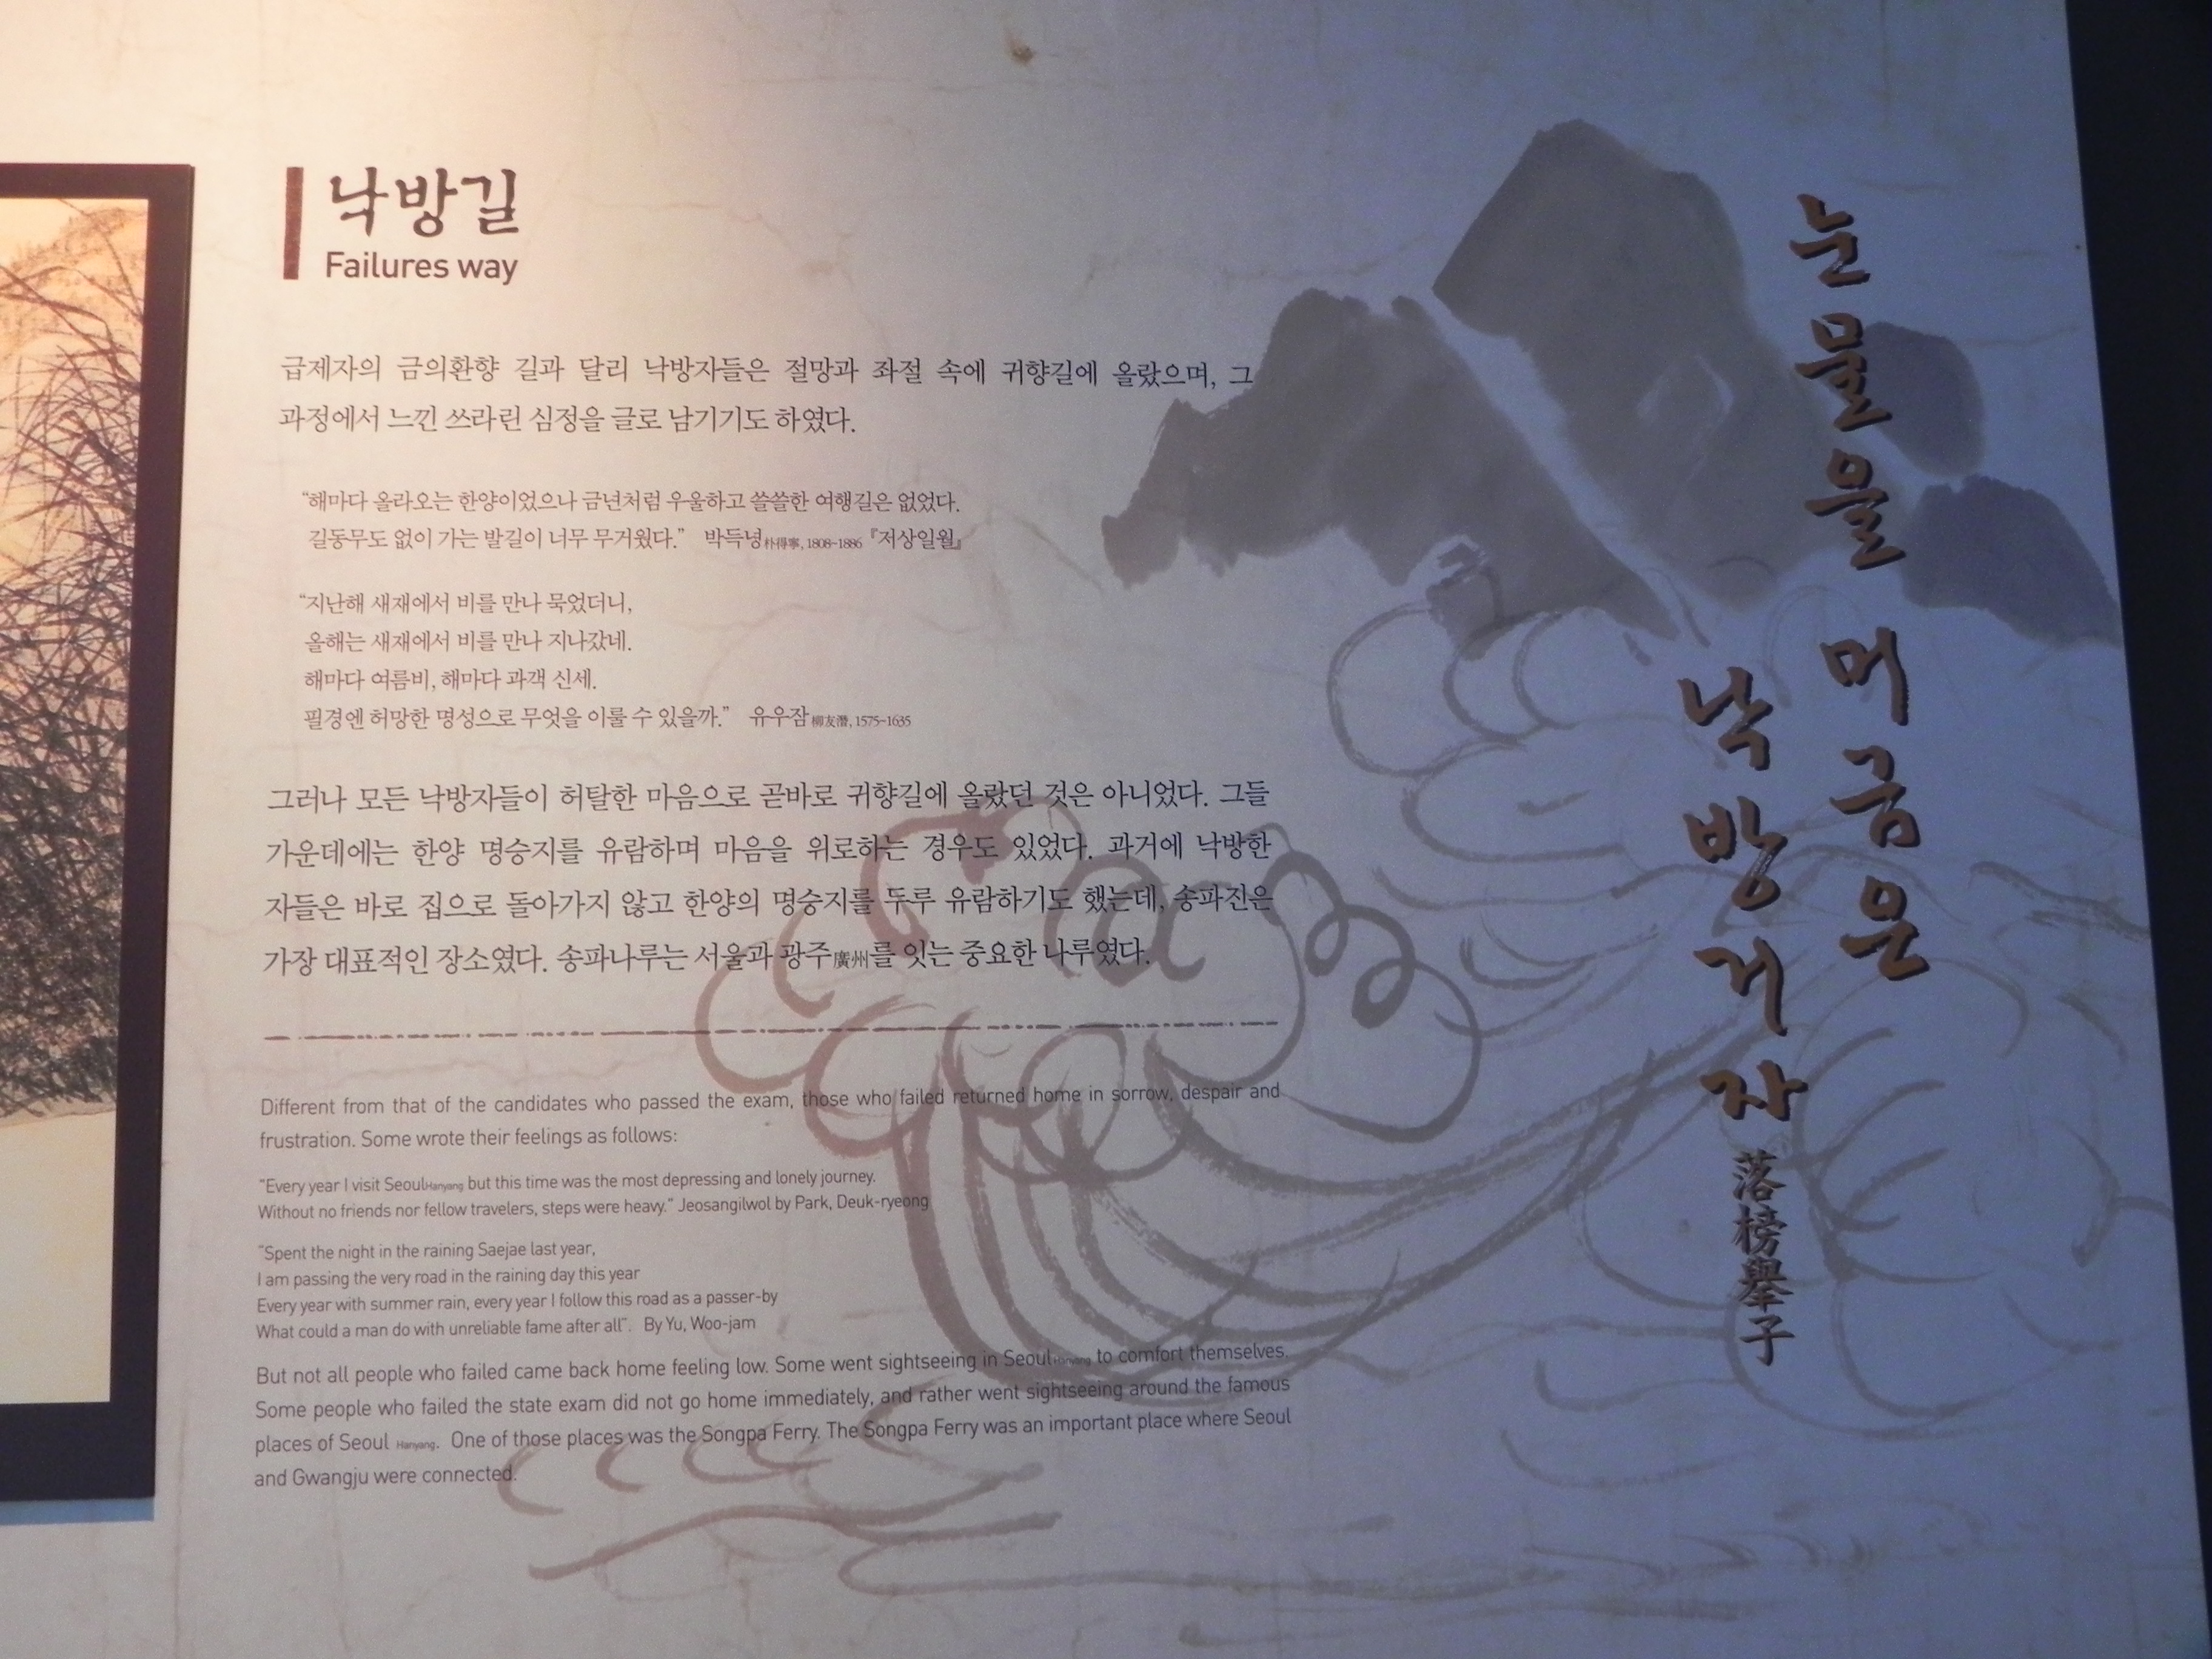 낙방길
Failures way
급제자의 금의환향 길과 달리 낙방자들은 절망과 좌절 속에 귀향길에 올랐으며, 그
과정에서 느낀 쓰라린 심정을 글로 남기기도 하였다.
“해마다 올라오는 한양이었으나 금년처럼 우울하고 쓸쓸한 여행길은 없었다.
길동무도 없이 가는 발길이 너무 무거웠다.” 박득녕朴得寧, 1808~1886 『저상일월』
“지난해 새재에서 비를 만나 묵었더니,
올해는 새재에서 비를 만나 지나갔네.
해마다 여름비, 해마다 과객 신세.
필경엔 허망한 명성으로 무엇을 이룰 수 있을까.” 유우잠柳友潛, 1575~1635
그러나 모든 낙방자들이 허탈한 마음으로 곧바로 귀향길에 올랐던 것은 아니었다. 그들
가운데에는 한양 명승지를 유람하며 마음을 위로하는 경우도 있었다. 과거에 낙방한
자들은 바로 집으로 돌아가지 않고 한양의 명승지를 두루 유람하기도 했는데, 송파진은
가장 대표적인 장소였다. 송파나루는 서울과 광주廣州를 잇는 중요한 나루였다.
Different from that of the candidates who passed the exam, those who failed returned home in sorrow, despair and
frustration. Some wrote their feelings as follows:
“Every year I visit SeoulHanyang but this time was the most depressing and lonely journey.
Without no friends nor fellow travelers, steps were heavy.” Jeosangilwol by Park, Deuk-ryeong
“Spent the night in the raining Saejae last year,
I am passing the very road in the raining day this year
Every year with summer rain, every year I follow this road as a passer-by
What could a man do with unreliable fame after all”. By Yu, Woo-jam
But not all people who failed came back home feeling low. Some went sightseeing in Seoul Hanyang to comfort themselves.
Some people who failed the state exam did not go home immediately, and rather went sightseeing around the famous
places of Seoul Hanyang. One of those places was the Songpa Ferry. The Songpa Ferry was an important place where Seoul
and Gwangju were connected.
눈물을 머금은
낙방거자 落榜擧子